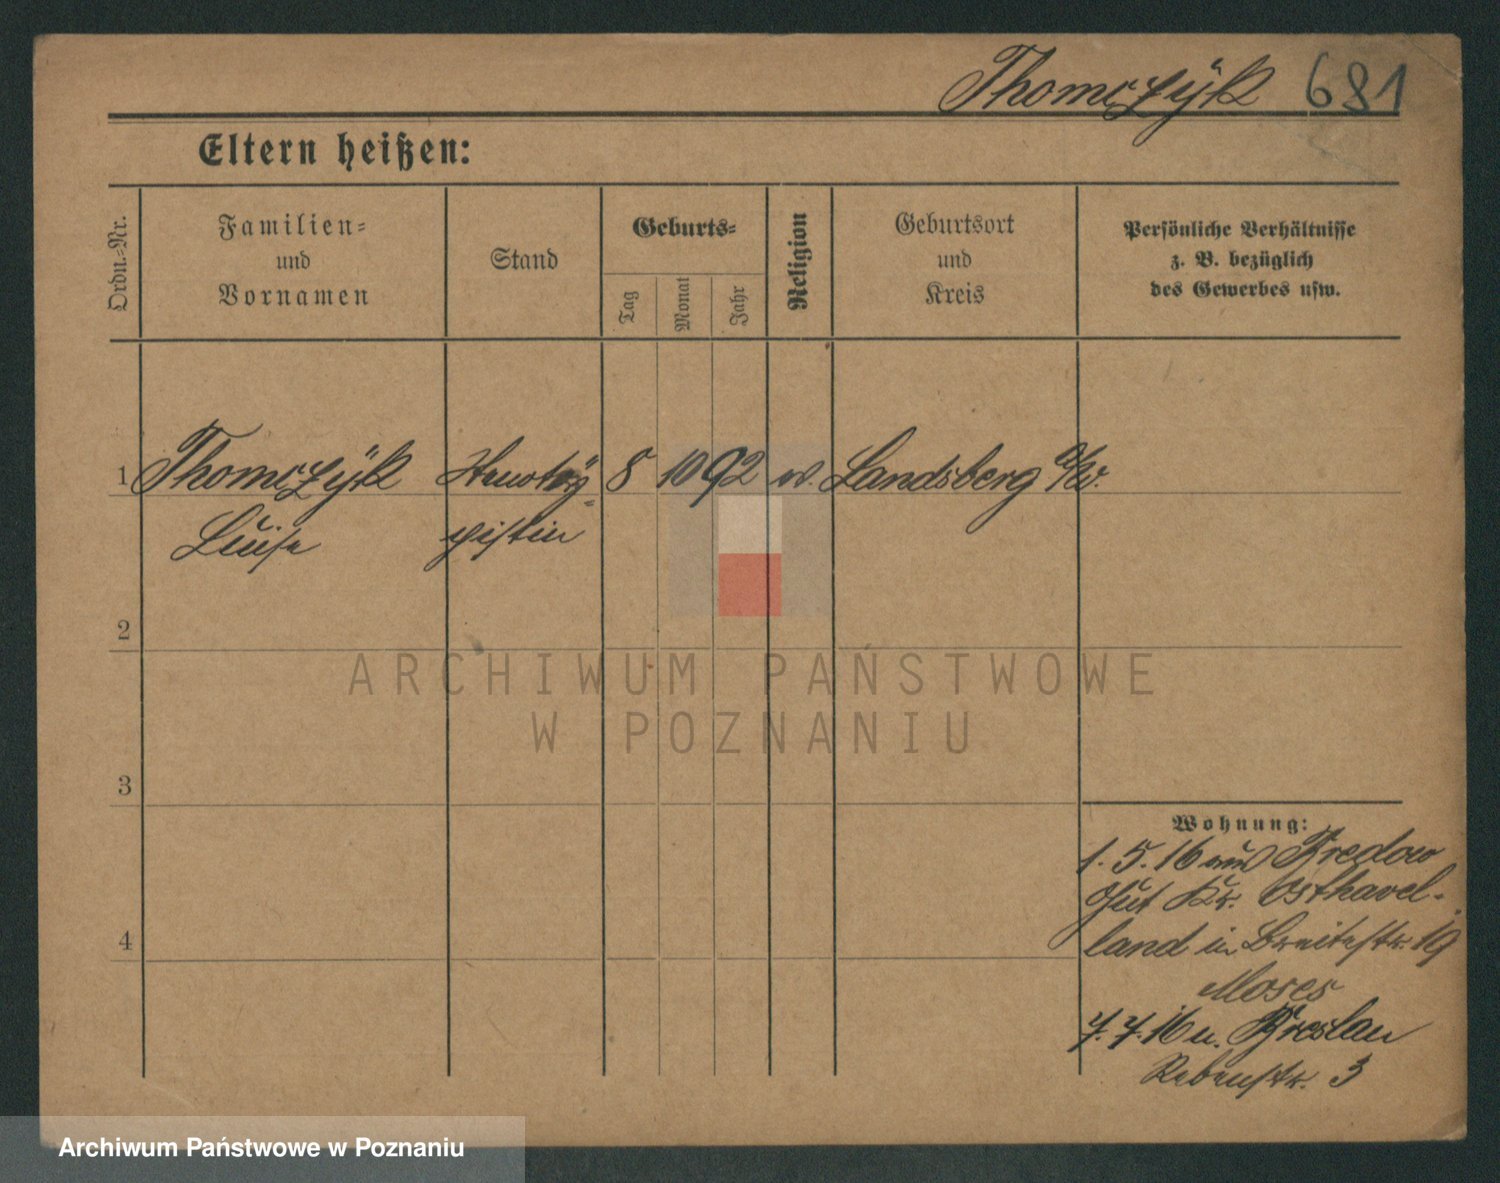 Thomczÿk 681
Eltern heißen:
Ordn.=Nr.
Familien=
und
Vornamen
Stand
Geburts=
Tag
Monat
Jahr
Religion
Geburtsort
und
Kreis
Persönliche Verhältnisse
z. B. bezüglich
des Gewerbes usw.
1 Thomczÿk Stenotÿ= 8 10 92 ev. Landsberg a/W.
Luise pistin
2
3
4
Wohnung:
1. 5. 16 Bredow
Gut Kr. Osthavel-
land in Breitestr. 19
Moses
7. 7. 16 n. Breslau
Rebenstr. 3
ARCHIWUM PAŃSTWOWE
W POZNANIU
Archiwum Państwowe w Poznaniu